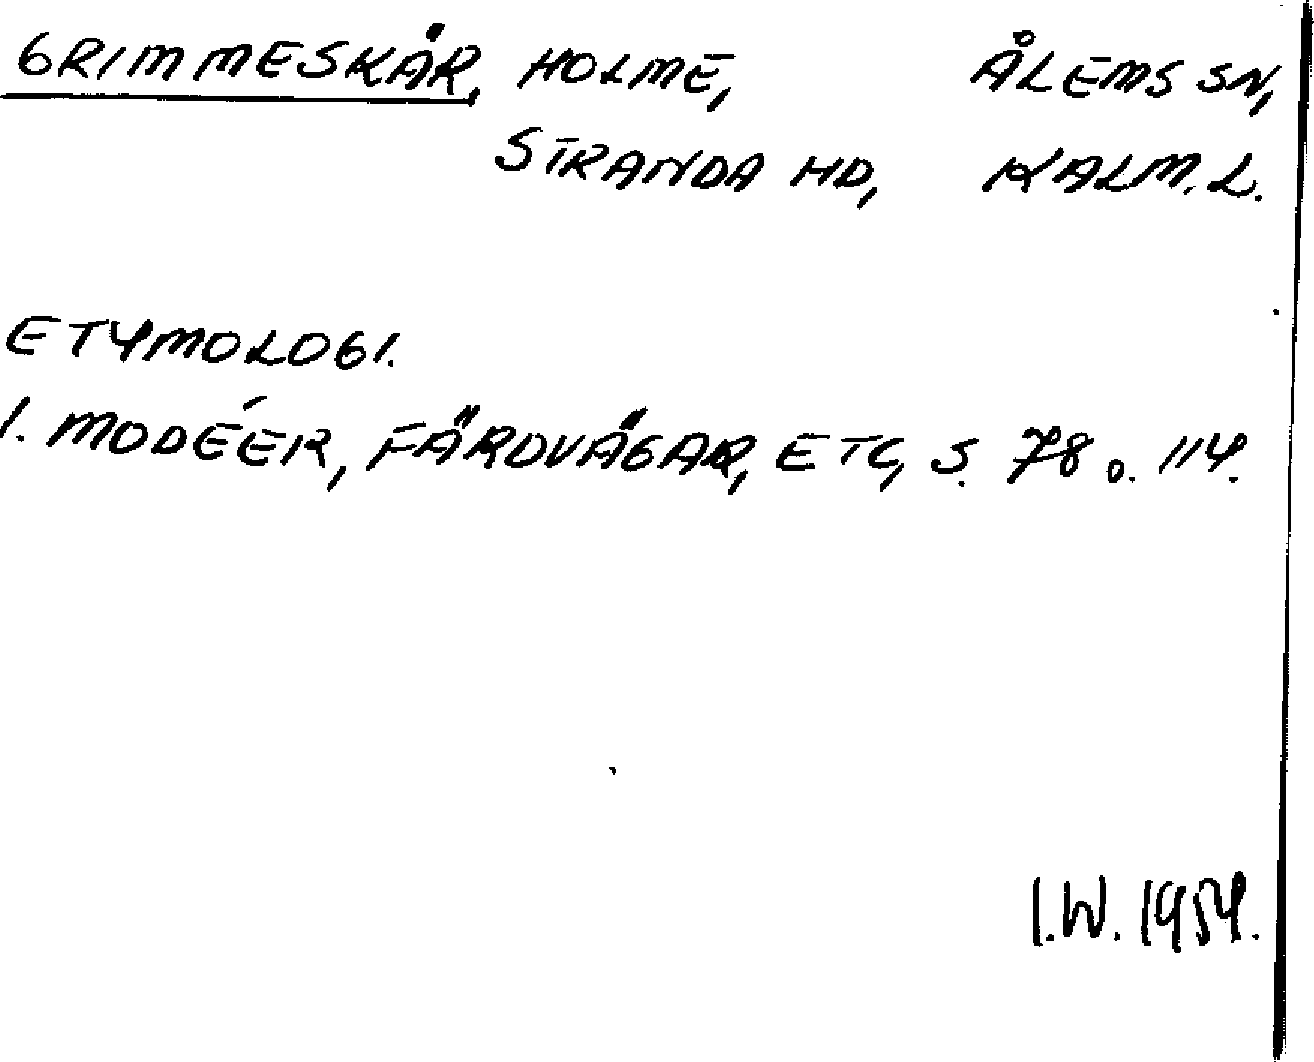 GRIMMESKÄR, HOLME, ÅLEMS SN,
STRANDA HD, KALM. L.
ETYMOLOGI.
I. MODÉER, FÄRDVÄGAR, ETC, S. 78 o. 114.
I.W. 1954.